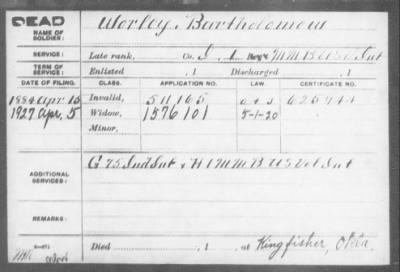 DEAD
NAME OF SOLDIER: Worley, Bartholomew
SERVICE: Late rank, Co. I, 1 Reg't M M B U S V Inf
TERM OF SERVICE: Enlisted , 1 Discharged , 1
DATE OF FILING. CLASS. APPLICATION NO. LAW CERTIFICATE NO.
1884 Apr. 15 Invalid, 511165
1927 Apr. 5 Widow, 1576101 5-1-20
Minor,
ADDITIONAL SERVICES: G 75 Ind Inf & H 1 M M B U S Vol Inf
REMARKS:
Died , 1 , at Kingfisher, Okla.